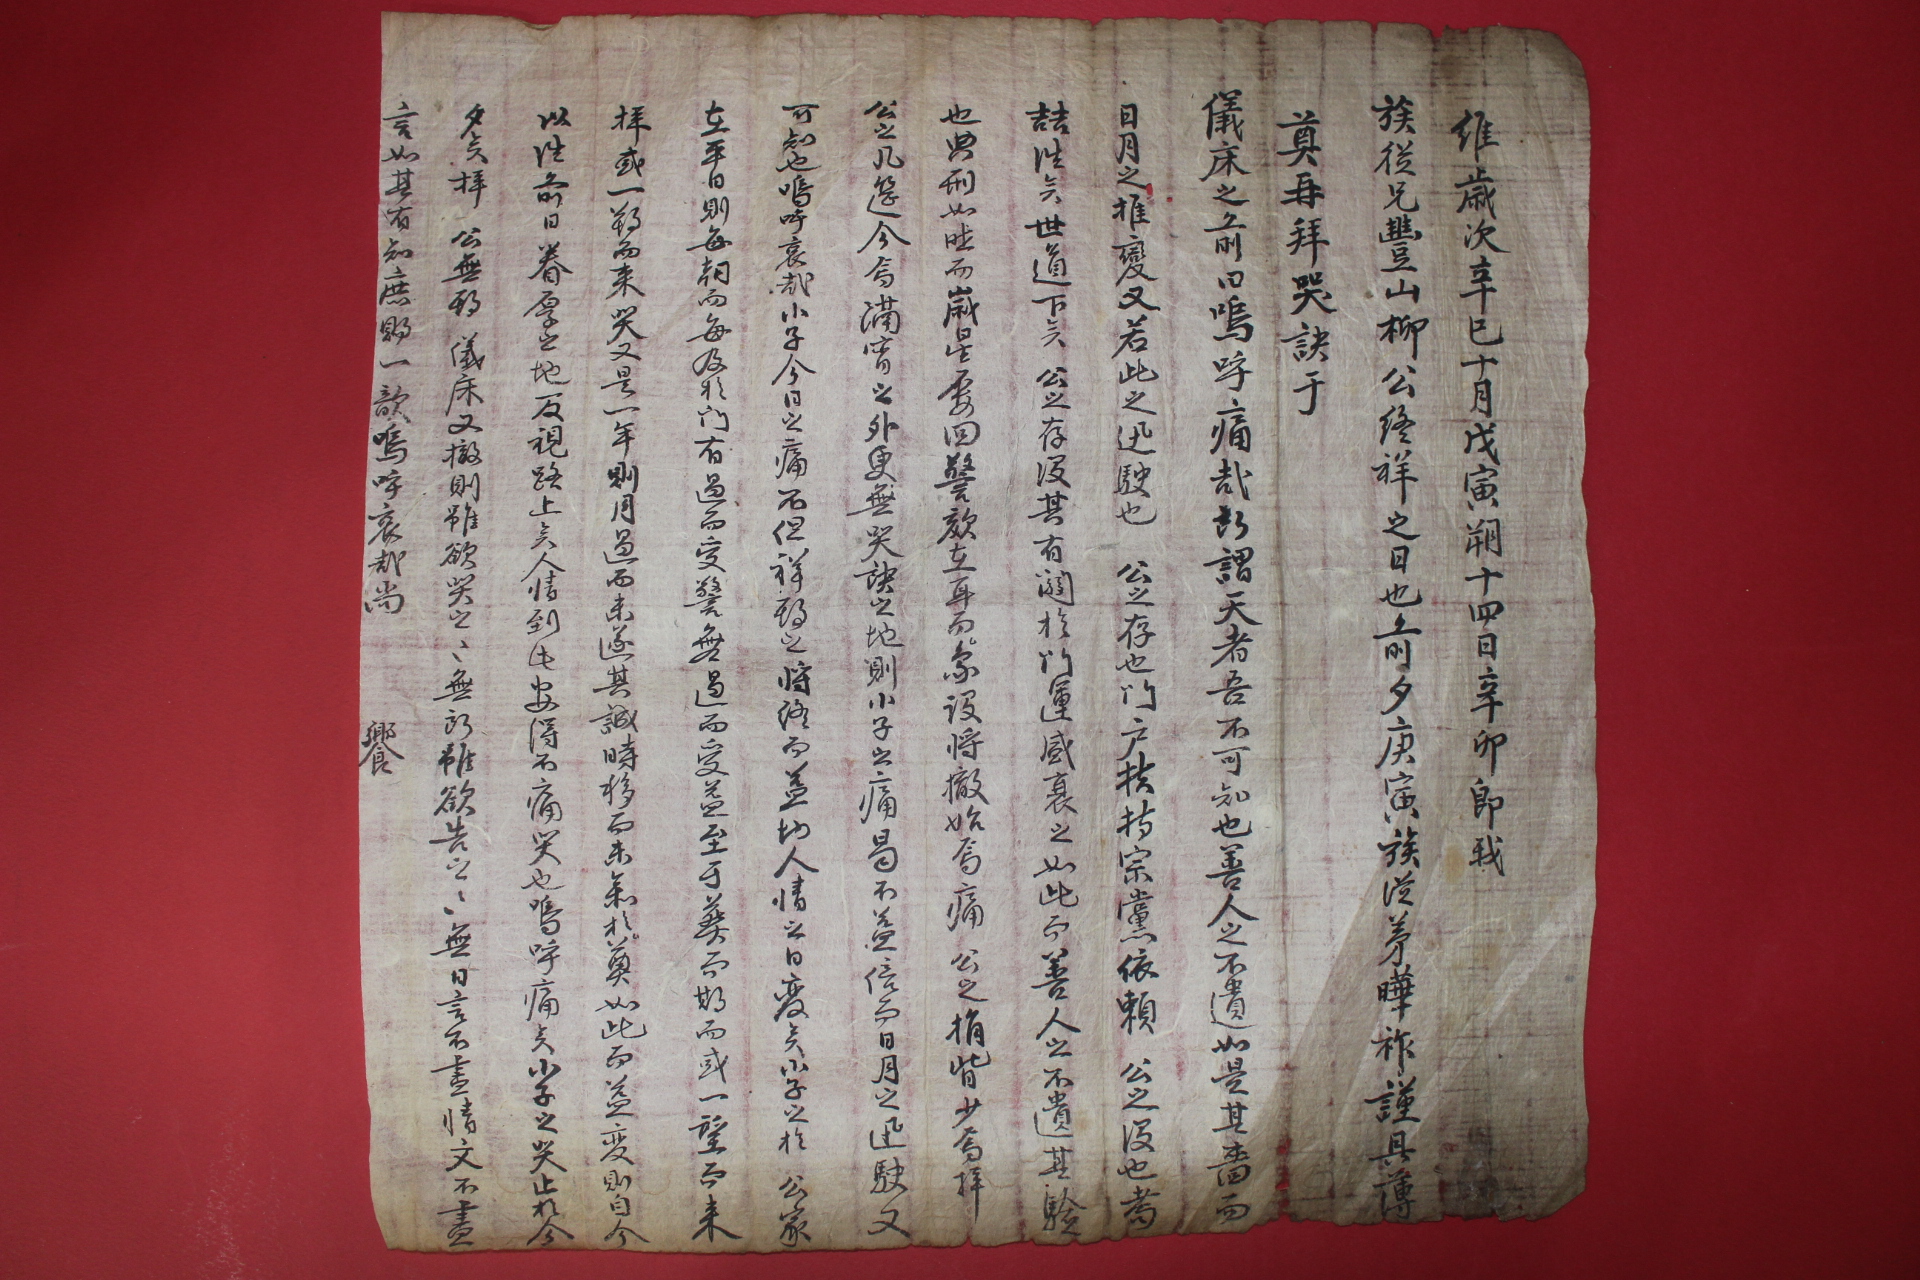 維歲次辛巳十月戊寅朔十四日辛卯即我
族從兄豊山柳公終祥之日也前夕庚寅族從弟曄祚謹具薄
奠再拜哭訣于
儀床之前曰嗚呼痛哉所謂天者吾不可知也善人之不遺如是其嗇而
日月之推變又若此之迅駛也 公之存也門戶扶持宗黨依賴 公之沒也耆
喆從矣世道下矣 公之存沒其有關於門運盛衰之如此而善人之不遺其驗
也典刑如昨而歲星雯回警欬在耳而象設將撤始焉痛 公之捐背少焉拜
公之几筵今焉滿哭之外更無哭訣之地則小子之痛曷不益倍而日月之迅駛又
可知也嗚呼哀哉小子今日之痛不但祥期之將終而益切人情之日變矣小子之於 公家
在平日則每朝而每夕於門有過而受警無過而受益至于葬而期而或一望而來
拜或一朔而來哭又是一年則月過而未遂其誠時移而未參於奠如此而益變則自今
以往前日眷厚之地反視路上矣人情到此安得不痛哭也嗚呼痛矣小子之哭止於今
夕矣拜 公無期 儀床又撤則雖欲哭之〻無所雖欲告之〻無日言不盡情文不盡
言如其有知庶賜一歆嗚呼哀哉尚
饗